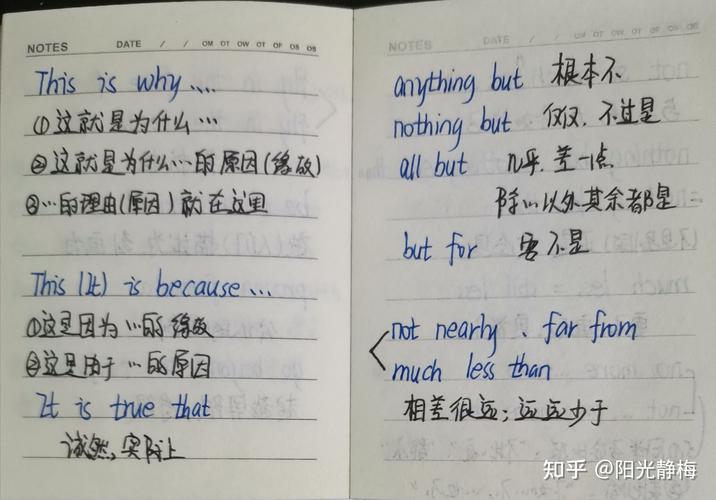 NOTES DATE / / OM OT OW OT OF OS OS
This is why ....
①这就是为什么…
②这就是为什么…的原因(缘故)
③…的理由(原因)就在这里
This (It) is because ...
①这是因为…的缘故
②这是由于…的原因
It is true that
诚然,实际上
NOTES DATE / / OM OT OW OT OF OS OS
anything but 根本不
nothing but 仅仅、不过是
all but 几乎、差一点
除…以外其余都是
but for 要不是
not nearly 、far from
much less than
相差很远;远远少于
知乎 @阳光静梅